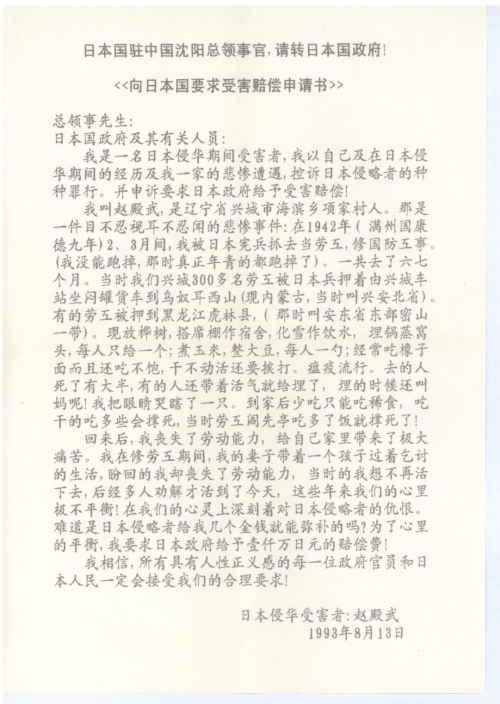 日本国驻中国沈阳总领事官,请转日本国政府!
<<向日本国要求受害赔偿申请书>>
总领事先生:
日本国政府及其有关人员:
我是一名日本侵华期间受害者,我以自己及在日本侵
华期间的经历及我一家的悲惨遭遇,控诉日本侵略者的种
种罪行。并申诉要求日本政府给予受害赔偿!
我叫赵殿武,是辽宁省兴城市海滨乡项家村人。那是
一件目不忍视耳不忍闻的悲惨事件:在1942年(满州国康
德九年)2、3月间,我被日本宪兵抓去当劳互,修国防互事。
(我没能跑掉,那时真正年青的都跑掉了)。一共去了六七
个月。当时我们兴城300多名劳互被日本兵押着由兴城车
站坐闷罐货车到乌奴耳西山(现内蒙古,当时叫兴安北省)。
有的劳互被押到黑龙江虎林县,(那时叫安东省东部密山
一带)。现放桦树,搭席棚作宿舍,化雪作饮水,埋锅蒸窝
头,每人只给一个;煮玉米,整大豆,每人一勺;经常吃橡子
面而且还吃不饱,干不动活还要挨打。瘟疫流行。去的人
死了有大半,有的人还带着活气就给埋了,埋的时候还叫
妈呢!我把眼睛哭瞎了一只。到家后少吃只能吃稀食,吃
干的吃多些会撑死,当时劳互阎先亭吃多了饭就撑死了!
回来后,我丧失了劳动能力,给自己家里带来了极大
痛苦。我在修劳互期间,我的妻子带着一个孩子过着乞讨
的生活,盼回的我却丧失了劳动能力,当时的我想不再活
下去,后经多人劝解才活到了今天,这些年来我们的心里
极不平衡!在我们的心灵上深刻着对日本侵略者的仇恨。
难道是日本侵略者给我几个金钱就能弥补的吗?为了心里
的平衡,我要求日本政府给予壹仟万日元的赔偿费!
我相信,所有具有人性正义感的每一位政府官员和日
本人民一定会接受我们的合理要求!
日本侵华受害者:赵殿武
1993年8月13日